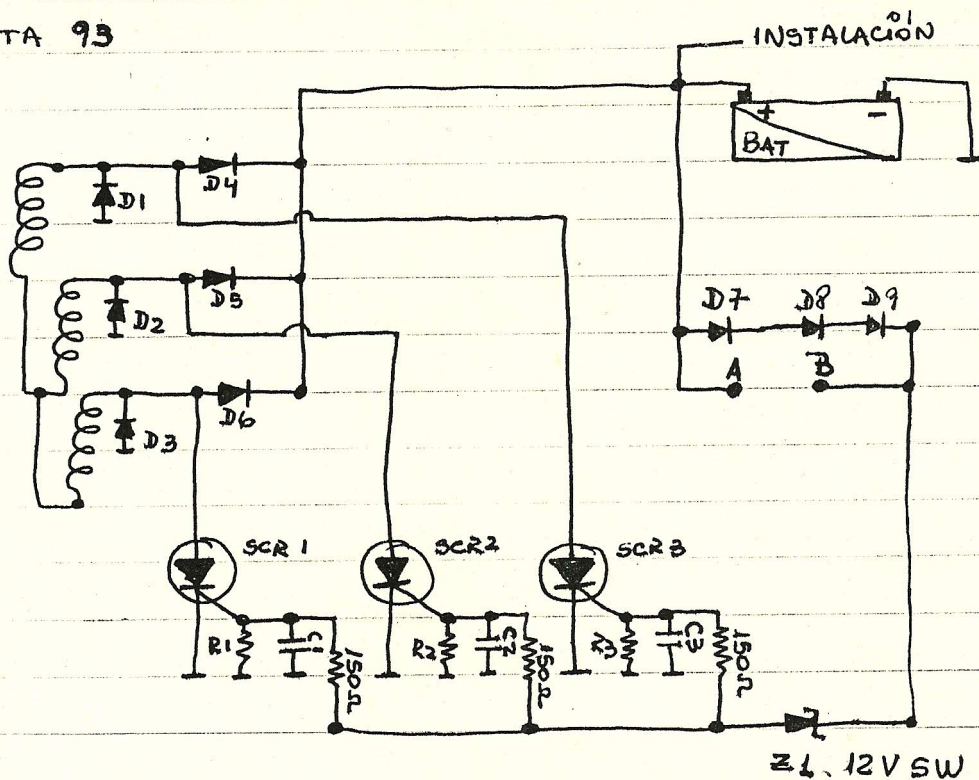 TA 93
INSTALACIÓN
+ -
BAT
D4
D1
D5
D2
D7 D8 D9
A B
D6
D3
SCR 1 SCR2 SCR3
R1 C1 150Ω R2 C2 150Ω R3 C3 150Ω
Z1. 12V SW